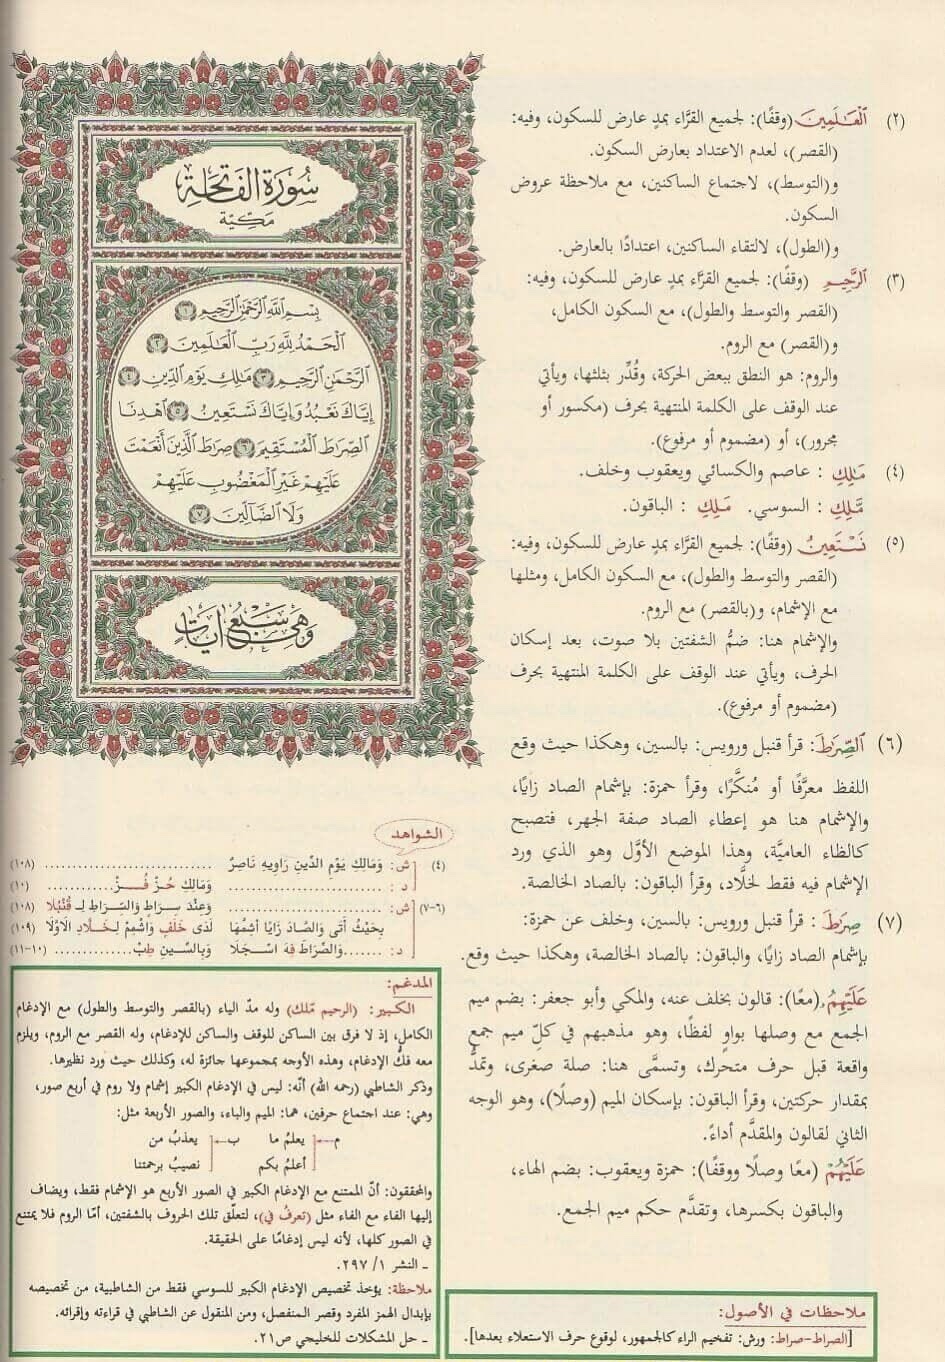 (٢) ٱلْعَـٰلَمِينَ (وقفًا): لجميع القرَّاء بمدٍ عارض للسكون، وفيه:
(القصر)، لعدم الاعتداد بعارض السكون.
و(التوسط)، لاجتماع الساكنين، مع ملاحظة عروض
السكون.
و(الطول)، لالتقاء الساكنين، اعتدادًا بالعارض.
(٣) ٱلرَّحِيمِ (وقفًا): لجميع القرَّاء بمدٍ عارض للسكون، وفيه:
(القصر والتوسط والطول)، مع السكون الكامل،
و(القصر) مع الروم.
والروم: هو النطق ببعض الحركة، وقُدِّر بثلثها، ويأتي
عند الوقف على الكلمة المنتهية بحرف (مكسور أو
مجرور)، أو (مضموم أو مرفوع).
(٤) مَـٰلِكِ : عاصم والكسائي ويعقوب وخلف.
مَّلِكِ : السوسي. مَلِكِ : الباقون.
(٥) نَسْتَعِينُ (وقفًا): لجميع القرَّاء بمدٍ عارض للسكون، وفيه:
(القصر والتوسط والطول)، مع السكون الكامل، ومثلها
مع الإشمام، و(بالقصر) مع الروم.
والإشمام هنا: ضمُّ الشفتين بلا صوت، بعد إسكان
الحرف، ويأتي عند الوقف على الكلمة المنتهية بحرف
(مضموم أو مرفوع).
(٦) ٱلصِّرَٰطَ: قرأ قنبل ورويس: بالسين، وهكذا حيث وقع
اللفظ معرَّفًا أو مُنكَّرًا، وقرأ حمزة: بإشمام الصاد زايًا،
والإشمام هنا هو إعطاء الصاد صفة الجهر، فتصبح
كالظاء العاميَّة، وهذا الموضع الأوَّل وهو الذي ورد
الإشمام فيه فقط لخلَّاد، وقرأ الباقون: بالصاد الخالصة.
(٧) صِرَٰطَ : قرأ قنبل ورويس: بالسين، وخلف عن حمزة:
بإشمام الصاد زايًا، والباقون: بالصاد الخالصة، وهكذا حيث وقع.
عَلَيْهِمُۥ (معًا): قالون بخلف عنه، والمكي وأبو جعفر: بضم ميم
الجمع مع وصلها بواوٍ لفظًا، وهو مذهبهم في كلِّ ميم جمع
واقعة قبل حرف متحرك، وتسمَّى هنا: صلة صغرى، وتمدُّ
بمقدار حركتين، وقرأ الباقون: بإسكان الميم (وصلًا)، وهو الوجه
الثاني لقالون والمقدَّم أداءً.
عَلَيْهُمْ (معًا وصلًا ووقفًا): حمزة ويعقوب: بضم الهاء،
والباقون بكسرها، وتقدَّم حكم ميم الجمع.
ملاحظات في الأصول:
[الصراط-صراط: ورش: تفخيم الراء كالجمهور، لوقوع حرف الاستعلاء بعدها].
سُورَةُ الفَاتِحَةِ
مَكِيَّة
بِسْمِ ٱللَّهِ ٱلرَّحْمَٰنِ ٱلرَّحِيمِ ١
ٱلْحَمْدُ لِلَّهِ رَبِّ ٱلْعَـٰلَمِينَ ٢
ٱلرَّحْمَٰنِ ٱلرَّحِيمِ ٣ مَـٰلِكِ يَوْمِ ٱلدِّينِ ٤
إِيَّاكَ نَعْبُدُ وَإِيَّاكَ نَسْتَعِينُ ٥ ٱهْدِنَا
ٱلصِّرَٰطَ ٱلْمُسْتَقِيمَ ٦ صِرَٰطَ ٱلَّذِينَ أَنْعَمْتَ
عَلَيْهِمْ غَيْرِ ٱلْمَغْضُوبِ عَلَيْهِمْ
وَلَا ٱلضَّآلِّينَ ٧
وَهِيَ سَبْعُ آيَاتٍ
الشواهد
(٤) ش: وَمَالِكِ يَوْمِ الدِّينِ رَاوِيهِ نَاصِرٌ .................. (١٠٨)
د: .................. وَمَالِكِ حُـزْ فُـزْ .......... (١٠)
(٦-٧) ش: .................. وَعِنْدَ سِرَاطٍ وَالسِّرَاطِ لِـ قُنْبُلَا (١٠٨)
بِحَيْثُ أَتَى وَالصَّادَ زَايًا أَشِمَّهَا لَدَى خَلَفٍ وَاشْمِمْ لِـخَلَّادِ الَاوَّلَا (١٠٩)
د: .......وَالصِّرَاطَ فِهْ اسْجَلَا وَبِالسِّينِ طِبْ............. (١٠-١١)
المدغم:
الكبير: (الرحيم مّلك) وله مدّ الياء (بالقصر والتوسط والطول) مع الإدغام
الكامل، إذ لا فرق بين الساكن للوقف والساكن للإدغام، وله القصر مع الروم، ويلزم
معه فكُّ الإدغام، وهذه الأوجه بمجموعها جائزة له، وكذلك حيث ورد نظيرها.
وذكر الشاطبي (رحمه الله) أنَّه: ليس في الإدغام الكبير إشمام ولا روم في أربع صور،
وهي: عند اجتماع حرفين، هما: الميم والباء، والصور الأربعة مثل:
م يعلمُ ما ب يعذبُ من
أعلمُ بكم نصيبُ برحمتنا
والمحققون: أنَّ الممتنع مع الإدغام الكبير في الصور الأربع هو الإشمام فقط، ويضاف
إليها الفاء مع الفاء مثل (تعرفُ في)، لتعلّق تلك الحروف بالشفتين، أمّا الروم فلا يمتنع
في الصور كلها، لأنه ليس إدغامًا على الحقيقة.
ـ النشر ١/ ٢٩٧.
ملاحظة: يؤخذ تخصيص الإدغام الكبير للسوسي فقط من الشاطبية، من تخصيصه
بإبدال الهمز المفرد وقصر المنفصل، ومن المنقول عن الشاطبي في قراءته وإقرائه.
ـ حل المشكلات للخليجي ص٢١.